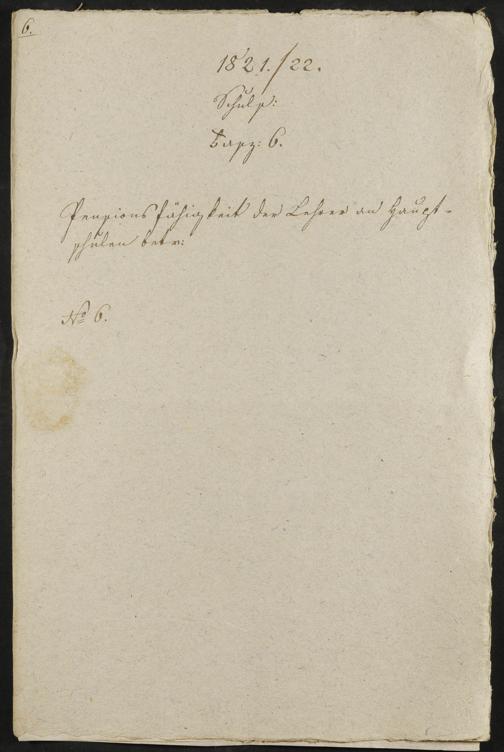 6.
1821./22.
Schul s:
Fasz: 6.
Pensionsfähigkeit der Lehrer an Haupt-
schulen betr:
No 6.